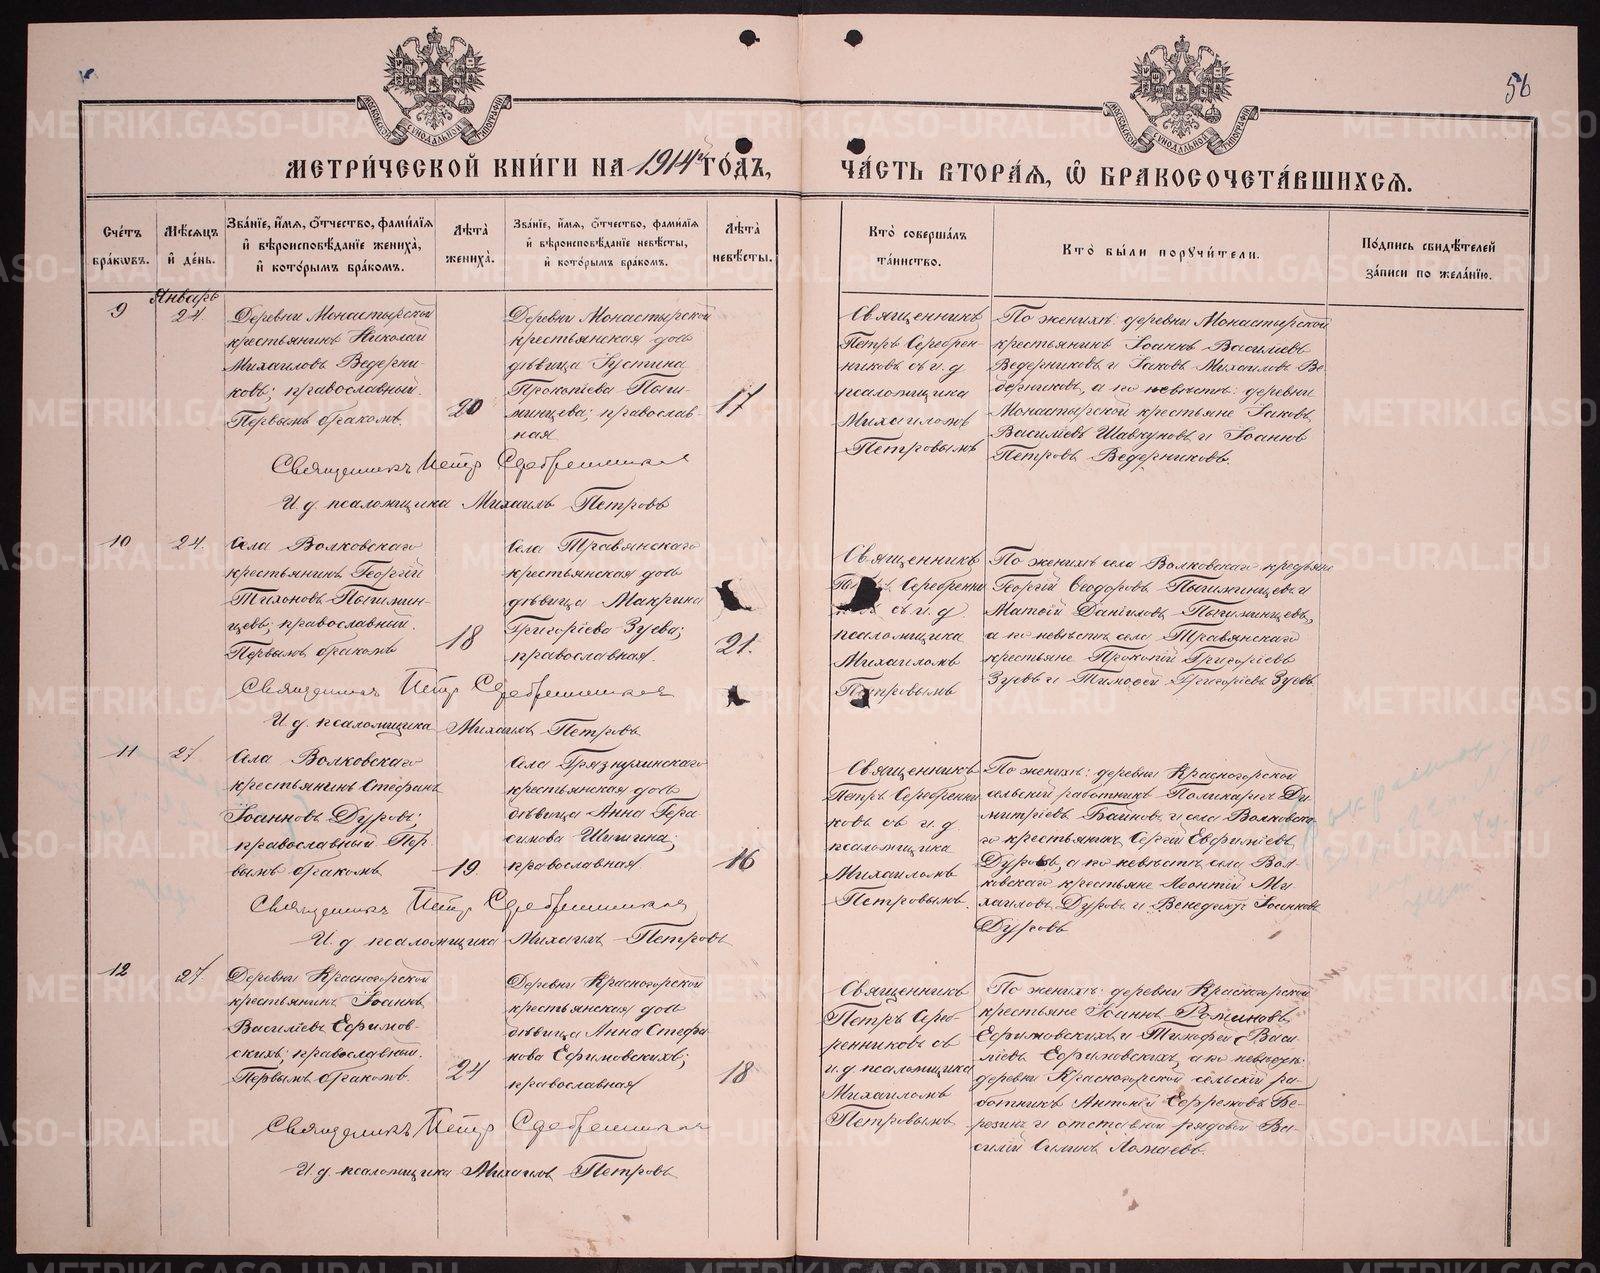 56
МЕТРИ́ЧЕСКОЙ КНИ́ГИ НА 1914й ГО́ДЪ,
ЧА́СТЬ ВТОРА́Ѧ, Ѽ БРАКОСОЧЕТА́ВШИХСѦ.
Сче́тъ бра́кѡвъ.
Мѣ́сѧцъ и҆ де́нь.
Зва́нїе, и҆́мѧ, ѻ҆́тчество, фамѝлїѧ
и҆ вѣроисповѣ́данїе жениха̀,
и҆ кото́рымъ бра́комъ.
Лѣ́та жениха̀.
Зва́нїе, и҆́мѧ, ѻ҆́тчество, фамѝлїѧ
и҆ вѣроисповѣ́данїе невѣ́сты,
и҆ кото́рымъ бра́комъ.
Лѣ́та невѣ́сты.
Кто̀ соверша́лъ
та́инство.
Кто̀ бы́ли порꙋчи́тели.
По́дпись свидѣ́телей
за́писи по жела́нїю.
9
Январь
24.
Деревни Монастырской
крестьянинъ Николай
Михаиловъ Ведерни-
ковъ; православный.
Первымъ бракомъ.
20
Деревни Монастырской
крестьянская дочь
дѣвица Іустина
Прокопіева Пыш-
минцева; православ-
ная
17
Священникъ
Петръ Серебрен-
никовъ съ и. д
псаломщика
Михаиломъ
Петровымъ
По женихѣ: деревни Монастырской
крестьянинъ Іоаннъ Василіевъ
Ведерниковъ и Іаковъ Михаиловъ Ве-
дерниковъ, а по невѣстѣ: деревни
Монастырской крестьяне Іаковъ
Василіевъ Шавкуновъ и Іоаннъ
Петровъ Ведерниковъ.
Священникъ Петр Серебренников
И. д. псаломщика Михаилъ Петровъ
10
24.
Села Волковскаго
крестьянинъ Георгій
Тихоновъ Пышмин-
цевъ; православный.
Первымъ бракомъ
18
Села Травянскаго
крестьянская дочь
дѣвица Макрина
Григоріева Зуева;
православная.
21.
Священникъ
Серебренни
съ и. д
псаломщика
Михаиломъ
Петровымъ
По женихѣ села Волковскаго крестьяне
Георгій Ѳеодоровъ Пышминцевъ и
Матѳій Даніиловъ Пышминцевъ,
а по невѣстѣ села Травянскаго
крестьяне Прокопій Григоріевъ
Зуевъ и Тимоѳей Григоріевъ Зуевъ
Священникъ Петр Серебренников
И. д. псаломщика Михаилъ Петровъ
11
27
Села Волковскаго
крестьянинъ Стефанъ
Іоанновъ Дуровъ;
православный Пер
вымъ бракомъ
19.
Села Грязнухинскаго
крестьянская дочь
дѣвица Анна Гера
симова Шишина;
православная
16
Священникъ
Петръ Серебренни
ковъ съ и. д.
псаломщика
Михаиломъ
Петровымъ.
По женихѣ: деревни Красногорской
сельскій работникъ Поликарпъ Ди-
митріевъ Баиновъ и села Волковска
го крестьянинъ Сергій Евфиміевъ
Дуровъ, а по невѣстѣ села Вол-
ковскаго крестьяне Леонтій Ми
хаиловъ Дуровъ и Венедиктъ Іоанновъ
Дуровъ
Священникъ Петр Серебренников
И. д псаломщика Михаилъ Петровъ
12
27
Деревни Красногорской
крестьянинъ Іоаннъ
Василіевъ Ефимов-
скихъ; православный.
Первымъ бракомъ.
24
Деревни Красногорской
крестьянская дочь
дѣвица Анна Стефа
нова Ефимовскихъ;
православная
18
Священникъ
Петръ Сереб-
ренниковъ съ
и. д псаломщика
Михаиломъ
Петровымъ
По женихѣ: деревни Красногорской
крестьяне Іоаннъ Романовъ
Ефимовскихъ и Тимофей Васи
ліевъ Ефимовскихъ, а по невѣстѣ:
деревни Красногорской сельскій ра-
ботникъ Антоній Ефремовъ Бе-
резинъ и отставной рядовой Ва-
силій Силинъ Ломаевъ.
Священникъ Петр Серебренников
И. д. псаломщика Михаилъ Петровъ